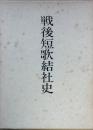 戦後短歌結社史